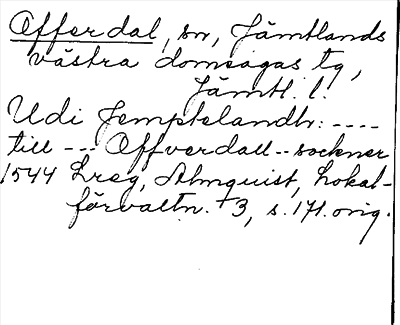 Offerdal, sn, Jämtlands
västra domsagas tg,
Jämtl. l.
Udi Jemptelandh: ----
till --- Offverdall -- sockner
1544 Lreg, Almquist, Lokal-
förvaltn. +3, s. 171. orig.